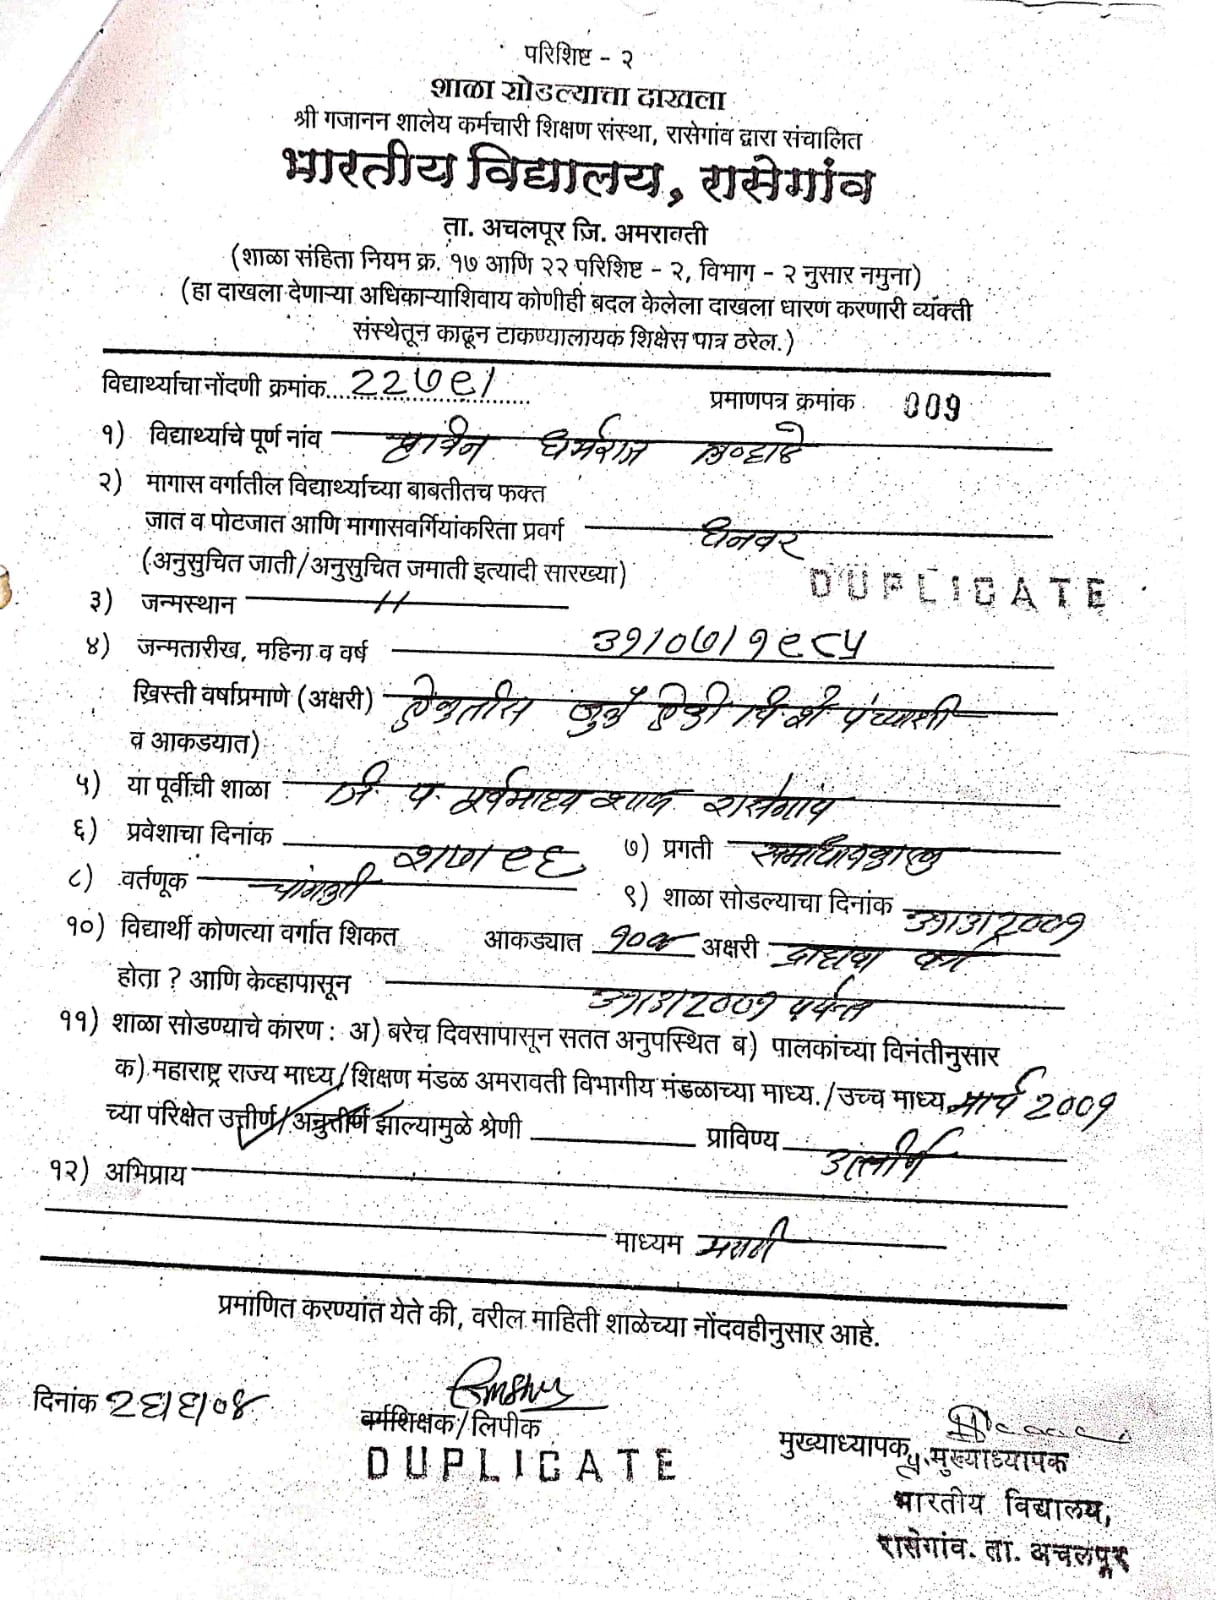 परिशिष्ट - २
शाळा सोडल्याचा दाखला
श्री गजानन शालेय कर्मचारी शिक्षण संस्था, रासेगांव द्वारा संचालित
भारतीय विद्यालय, रासेगांव
ता. अचलपूर जि. अमरावती
(शाळा संहिता नियम क्र. १७ आणि २२ परिशिष्ट - २, विभाग - २ नुसार नमुना)
(हा दाखला देणाऱ्या अधिकाऱ्याशिवाय कोणीही बदल केलेला दाखला धारण करणारी व्यक्ती
संस्थेतून काढून टाकण्यालायक शिक्षेस पात्र ठरेल.)
विद्यार्थ्याचा नोंदणी क्रमांक.... प्रमाणपत्र क्रमांक 009
१) विद्यार्थ्याचे पूर्ण नांव धर्मराज
२) मागास वर्गातील विद्यार्थ्याच्या बाबतीतच फक्त
जात व पोटजात आणि मागासवर्गियांकरिता प्रवर्ग धनवर
(अनुसुचित जाती/अनुसुचित जमाती इत्यादी सारख्या)
DUPLICATE
३) जन्मस्थान —〃—
४) जन्मतारीख, महिना व वर्ष ३१/०७/१९८५
ख्रिस्ती वर्षाप्रमाणे (अक्षरी) ऐकुतीस जुलै ऐकी विशे पंच्याशी
व आकडयात)
५) या पूर्वीची शाळा जि. प. पूर्व माध्य शाळा रासेगांव
६) प्रवेशाचा दिनांक ७) प्रगती समाधानकारक
८) वर्तणूक चांगली ९) शाळा सोडल्याचा दिनांक
१०) विद्यार्थी कोणत्या वर्गात शिकत आकड्यात १० वा अक्षरी दाहावा वर्ग
होता ? आणि केव्हापासून पर्यंत
११) शाळा सोडण्याचे कारण : अ) बरेच दिवसापासून सतत अनुपस्थित ब) पालकांच्या विनंतीनुसार
क) महाराष्ट्र राज्य माध्य/शिक्षण मंडळ अमरावती विभागीय मंडळाच्या माध्य./उच्च माध्य. मार्च २००१
च्या परिक्षेत उत्तीर्ण/अनुत्तीर्ण झाल्यामुळे श्रेणी प्राविण्य उत्तीर्ण
१२) अभिप्राय
माध्यम मराठी
प्रमाणित करण्यांत येते की, वरील माहिती शाळेच्या नोंदवहीनुसार आहे.
दिनांक २६/६/०४
वर्गशिक्षक/लिपीक
DUPLICATE
मुख्याध्यापक
प्र.मुख्याध्यापक
भारतीय विद्यालय,
रासेगांव. ता. अचलपूर